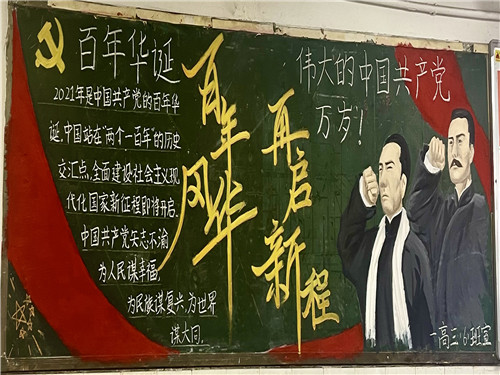 百年华诞
2021年是中国共产党的百年华
诞,中国站在“两个一百年”的历史
交汇点,全面建设社会主义现
代化国家新征程即将开启.
中国共产党矢志不渝
为人民谋幸福,
为民族谋复兴,为世界
谋大同.
百年风华
再启新程
伟大的中国共产党
万岁!
一高三(6)班宣